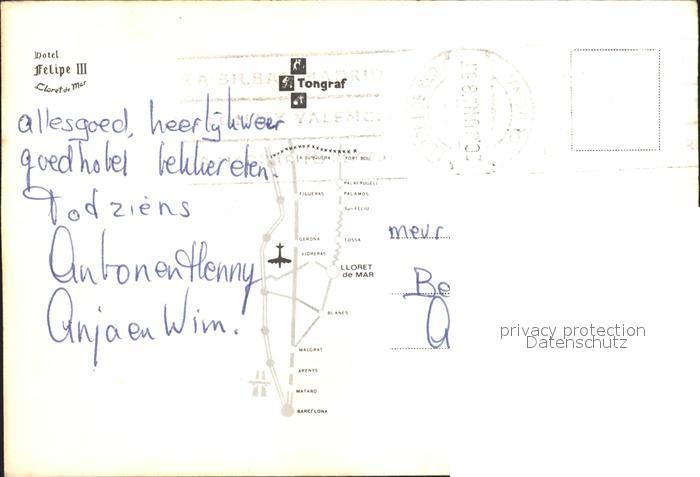 Hotel
Felipe III
Lloret de Mar
Tongraf
allesgoed, heerlijk weer
goed hotel lekker eten.
Tot ziéns
Anton en Henny
Anja en Wim.
mevr
Be
LA JUNQUERA
PORT BOU
PALAFRUGELL
FIGUERAS
PALAMOS
S. FELIU
GERONA
TOSSA
VIDRERAS
LLORET
de MAR
BLANES
MALGRAT
ARENYS
MATARO
BARCELONA
privacy protection
Datenschutz